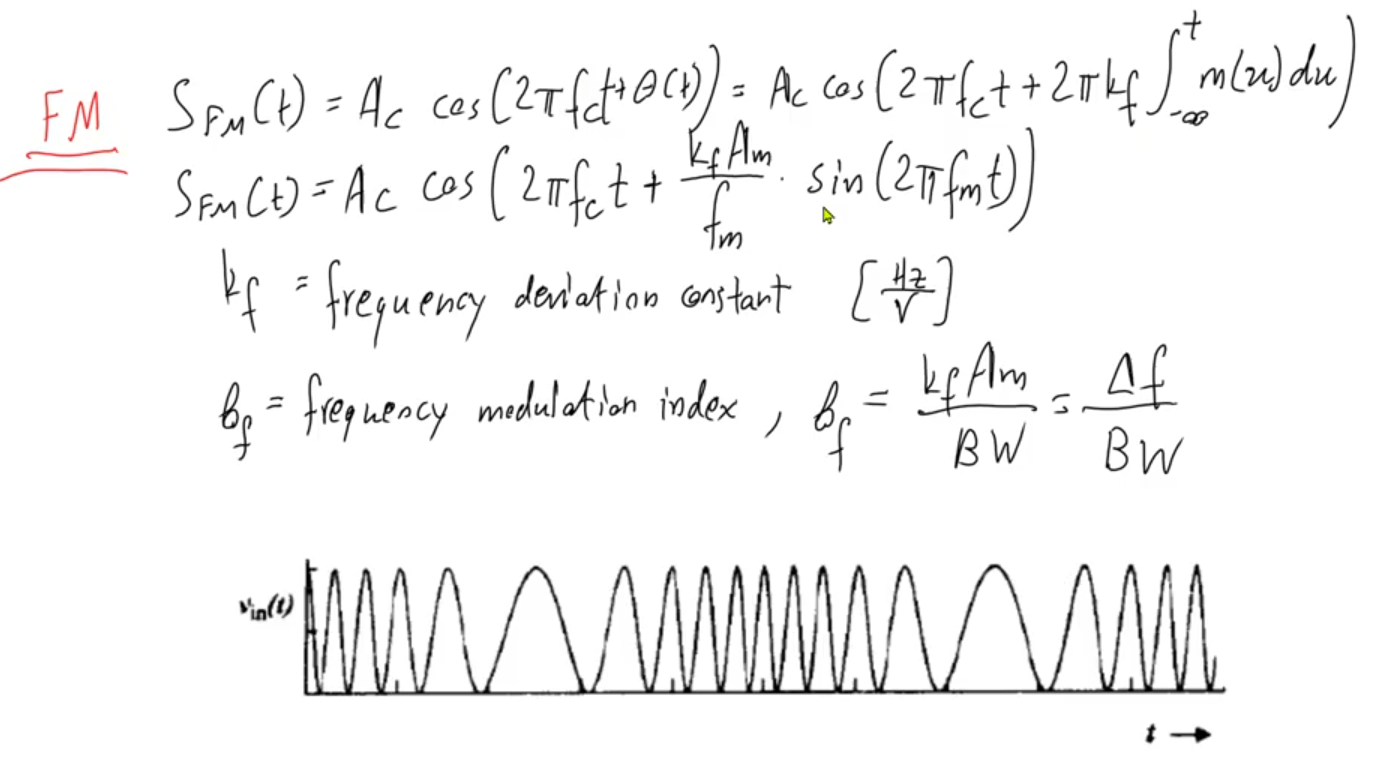 FM S_FM(t) = Ac cos(2πf_ct+θ(t)) = Ac cos(2πf_ct + 2πk_f ∫_-∞^t m(u)du)
S_FM(t) = Ac cos(2πf_ct + k_fAm/f_m · sin(2πf_mt))
k_f = frequency deviation constant [Hz/V]
β_f = frequency modulation index, β_f = k_fAm/BW = Δf/BW
v_in(t)
t →